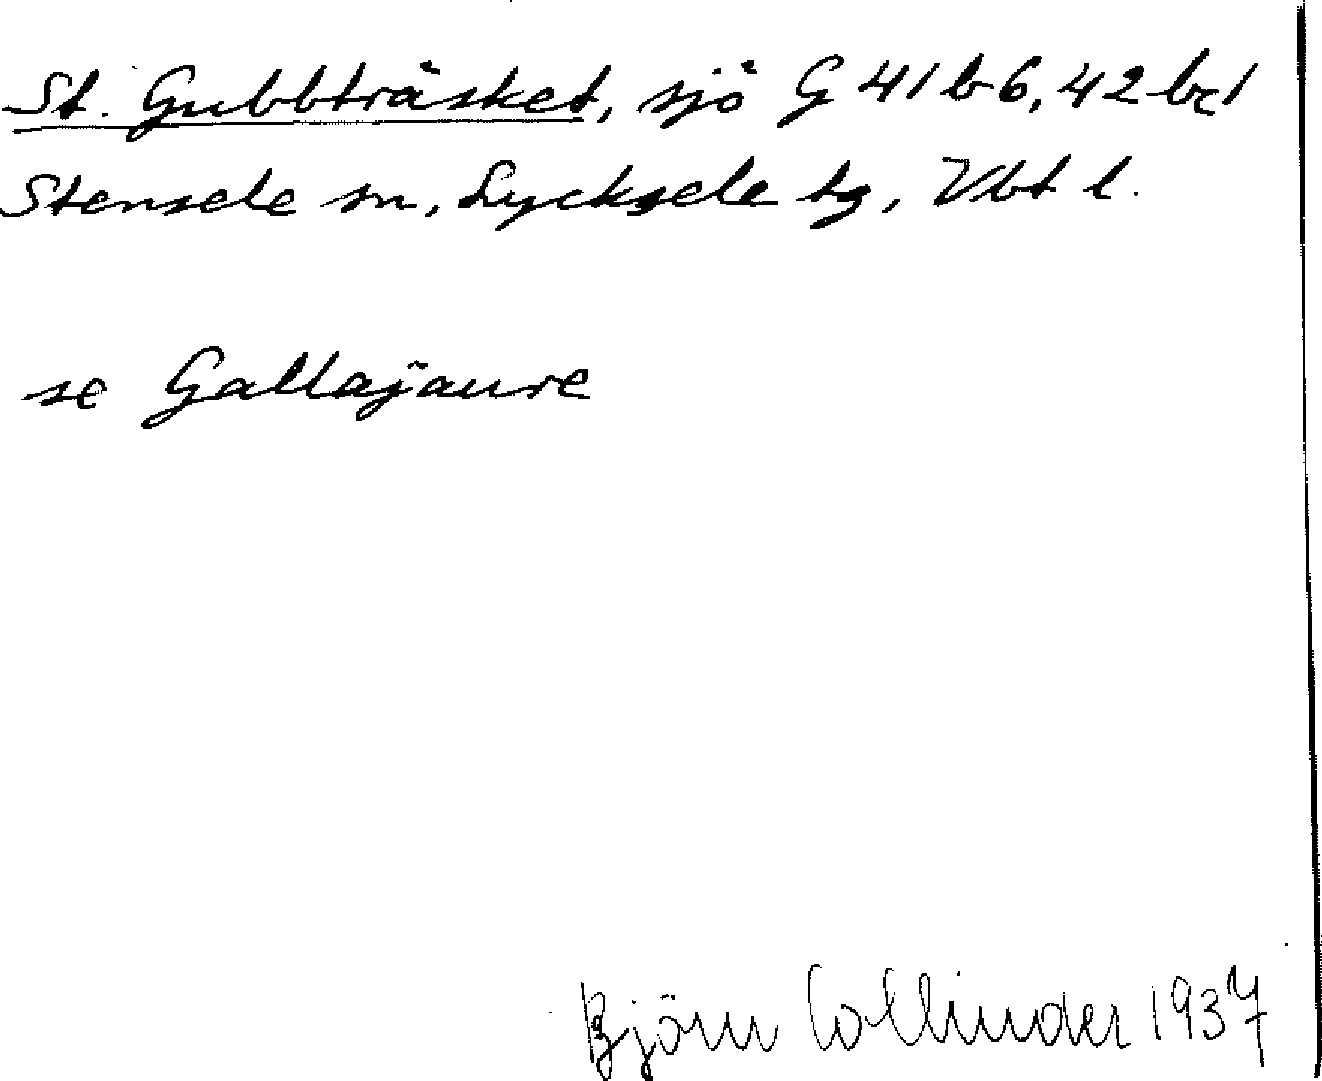 St. Gubbträsket, sjö G 41 b 6, 42 bc1
Stensele sn, Lycksele tg, Vbt l.
se Gallajaure
Björn Collinder 1937